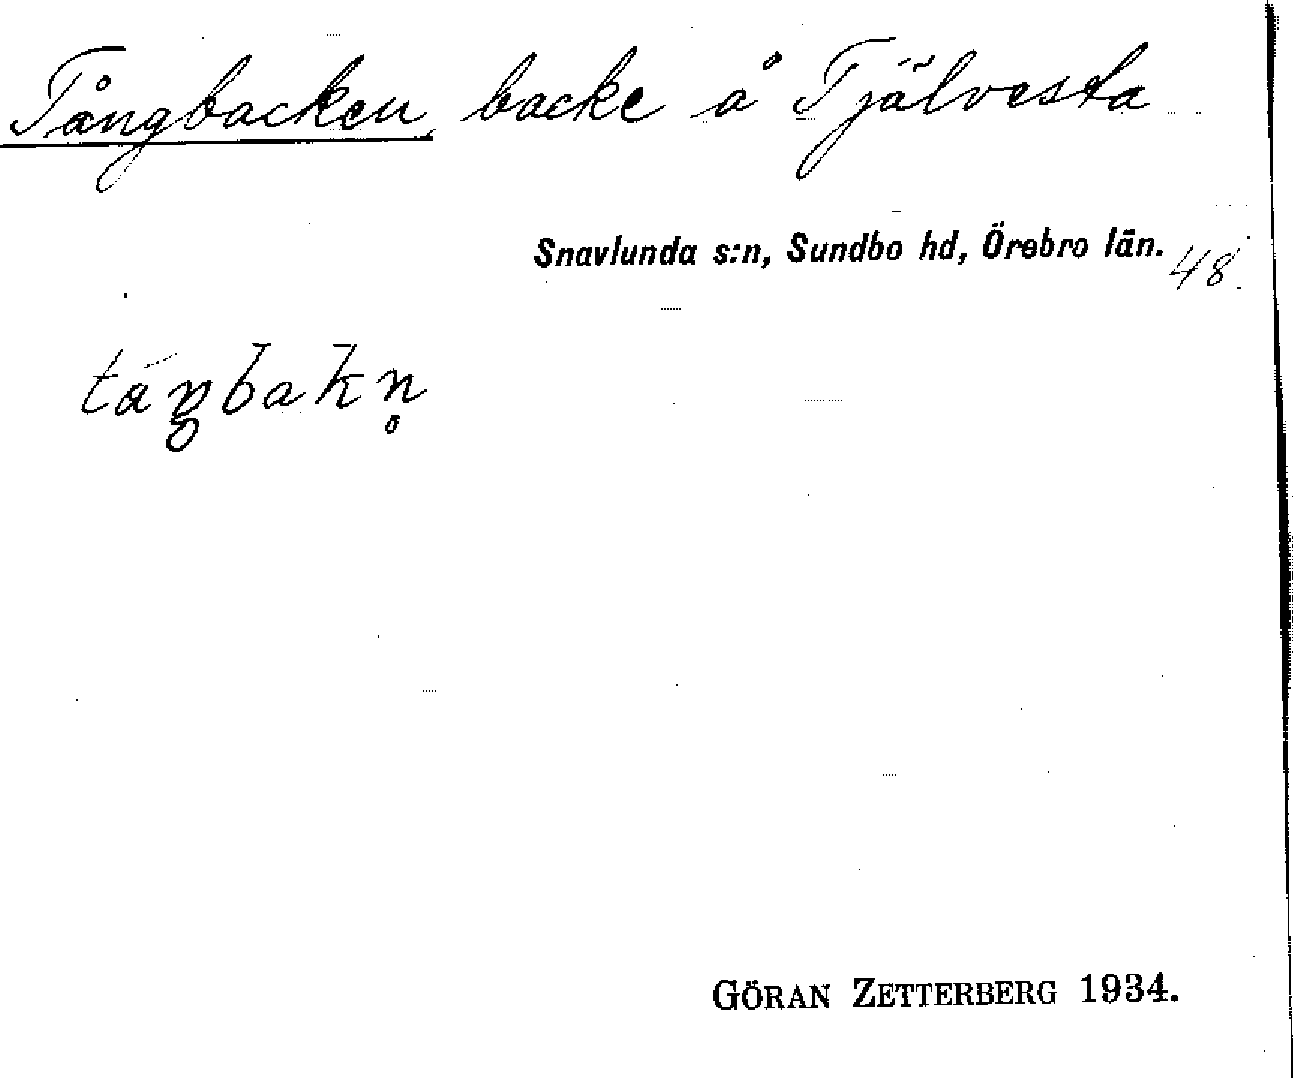 Tångbacken, backe å Tjälvesta
Snavlunda s:n, Sundbo hd, Örebro län. 48.
táŋ̥bakn̥
GÖRAN ZETTERBERG 1934.